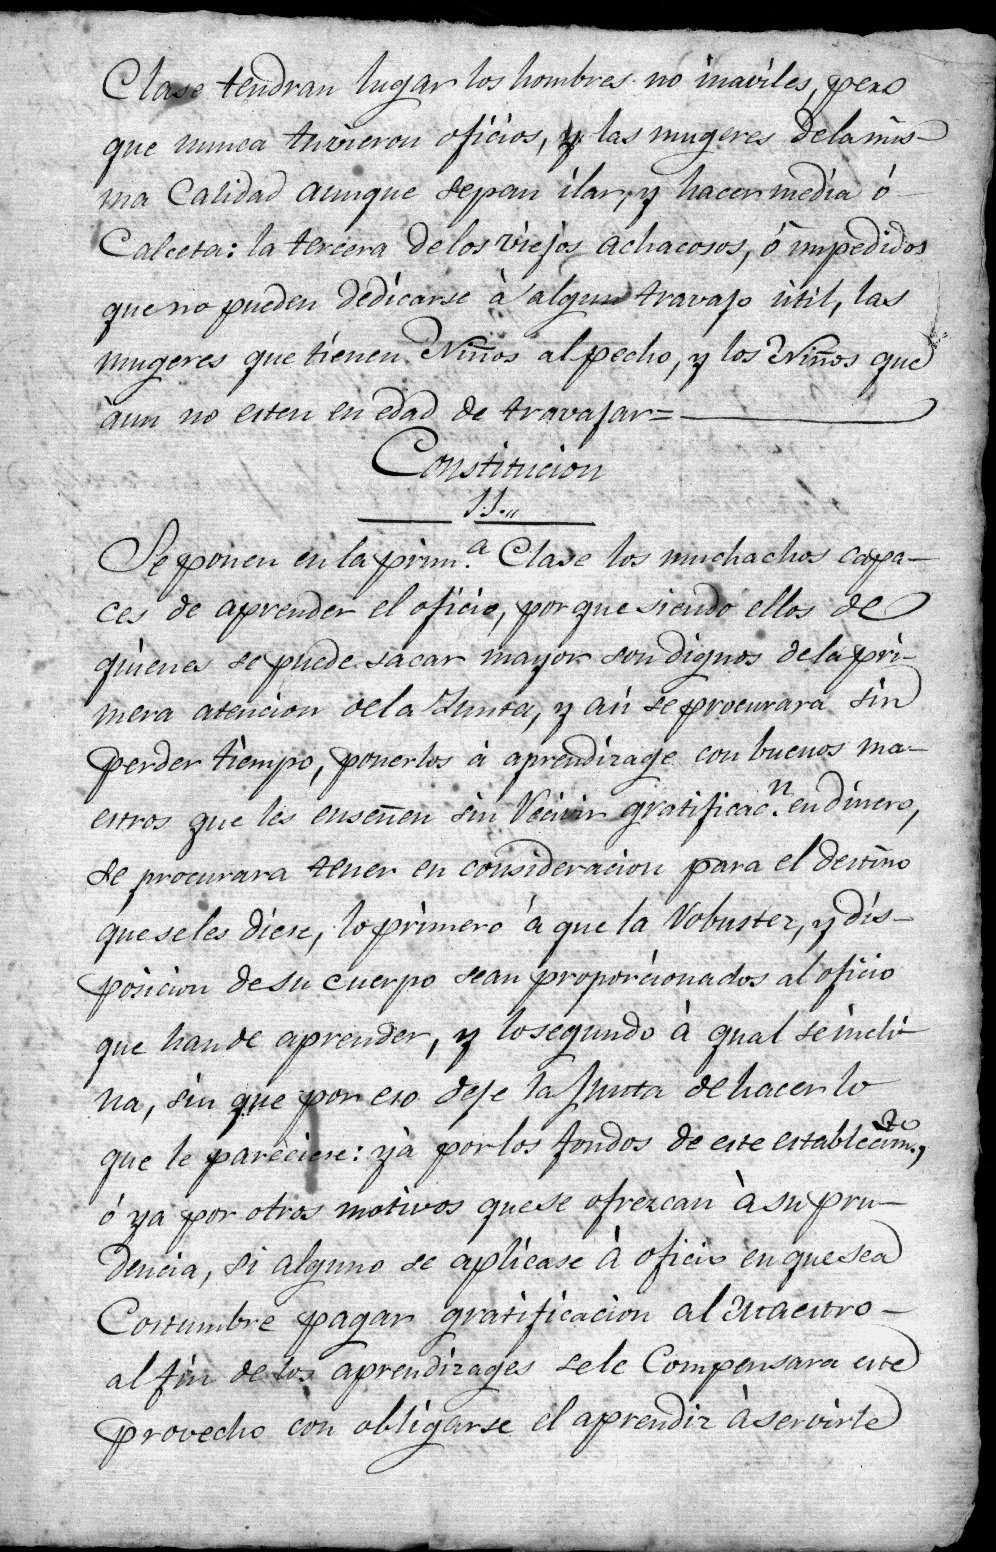 Clase tendran lugar los hombres no inaviles, pero
que nunca tuvieron oficios, y las mugeres dela mis-
ma Calidad aunque sepan ilar, y hacer media ó
Calceta: la tercera de los viejos achacosos, ó impedidos
que no pueden dedicarse à algun travajo util, las
mugeres que tienen Niños al pecho, y los Niños que
àun no esten en edad de travajar=
Constitucion
11.,,
Se ponen en la prim.ª Clase los muchachos capa-
ces de aprender el oficio, por que siendo ellos de
quienes se puede sacar mayor son dignos dela pri-
mera atencion dela Junta, y asi se procurara sin
perder tiempo, ponerlos à aprendizage con buenos ma-
estros que les enseñen sin recivir gratificac.n en dinero,
se procurara tener en consideracion para el destino
que seles diese, lo primero à que la robustez, y dis-
posicion de su cuerpo sean proporcionados al oficio
que han de aprender, y lo segundo à qual se incli-
na, sin que por eso deje la Junta de hacer lo
que le pareciese: yà por los fondos de este establecim.to,
ó ya por otros motivos que se ofrezcan à su pru-
dencia, si alguno se aplicase à oficio en que sea
Costumbre pagar gratificacion al Maestro-
al fin de los aprendizages sele Compensara este
provecho con obligarse el aprendiz à servirle